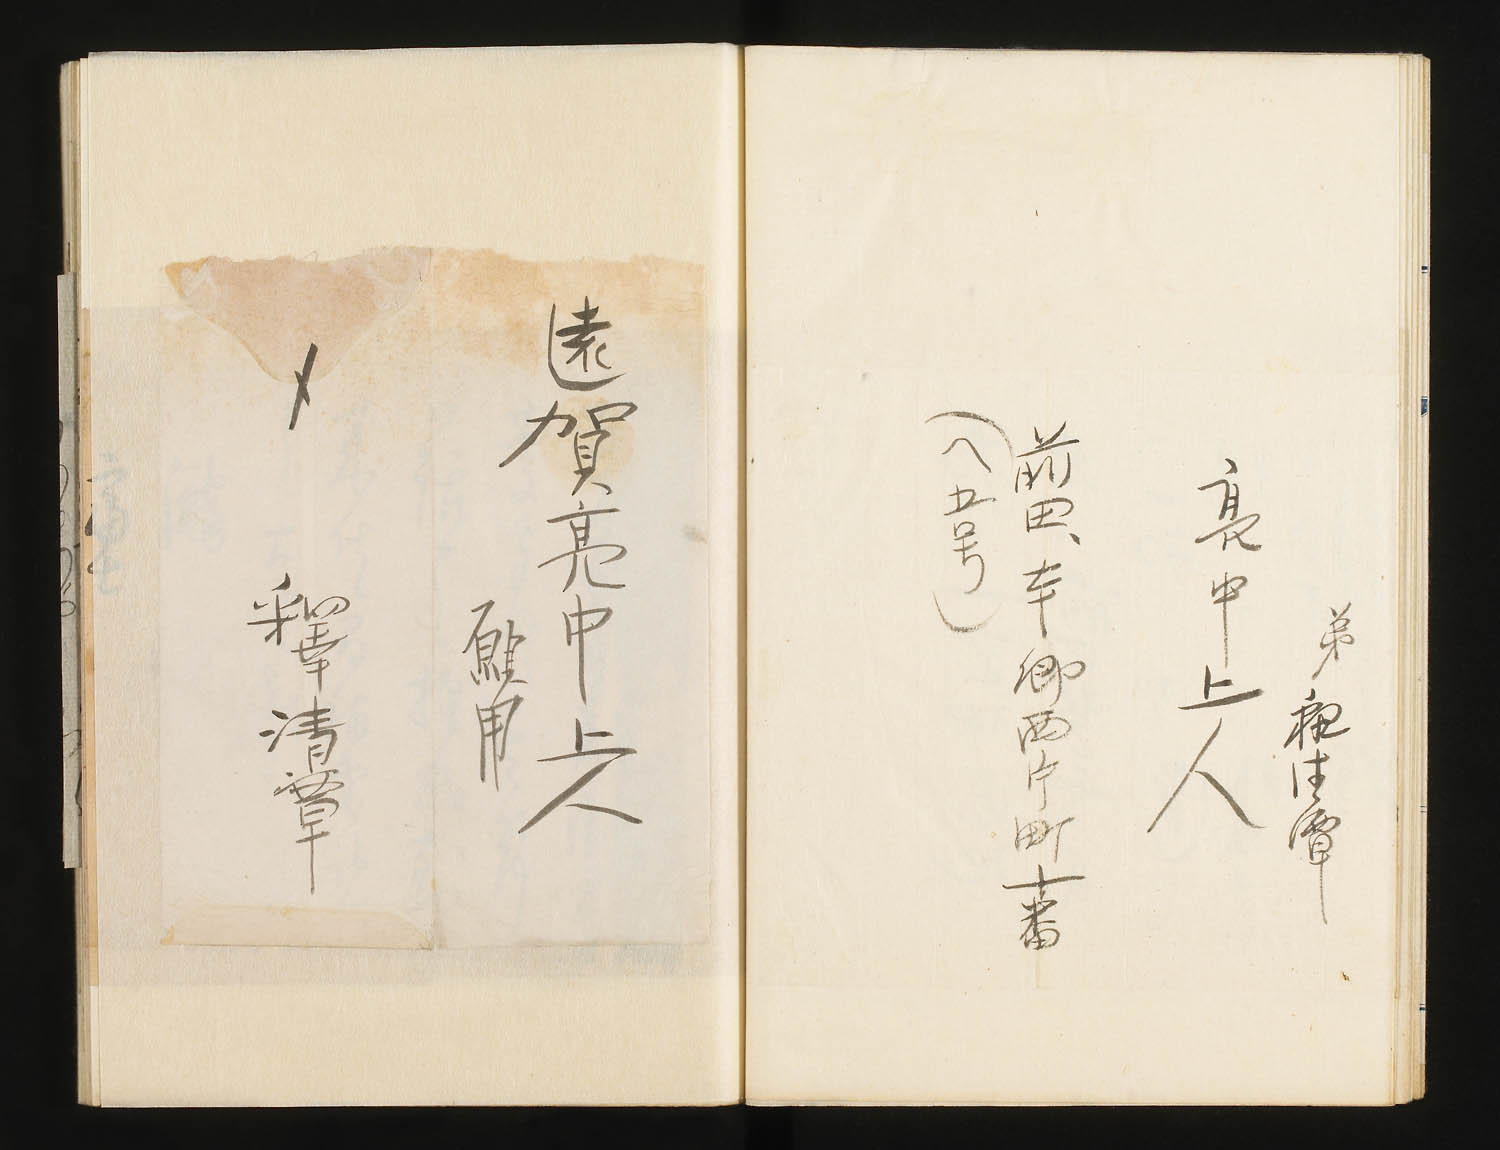 弟 釋清潭
亮中上人
前田、本郷西片町十番
(八五号)
遠賀亮中上人
〆
釋清潭